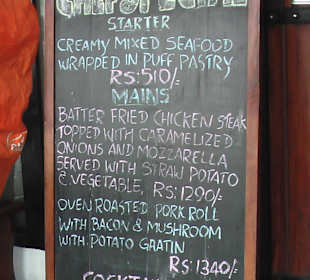 STARTER
CREAMY MIXED SEAFOOD
WRAPPED IN PUFF PASTRY
RS:510/-
MAINS
BATTER FRIED CHICKEN STEAK
TOPPED WITH CARAMELIZED
ONIONS AND MOZZARELLA
SERVED WITH STRAW POTATO
& VEGETABLE, RS:1290/-
OVEN ROASTED PORK ROLL
WITH BACON & MUSHROOM
WITH POTATO GRATIN
RS 1340/-